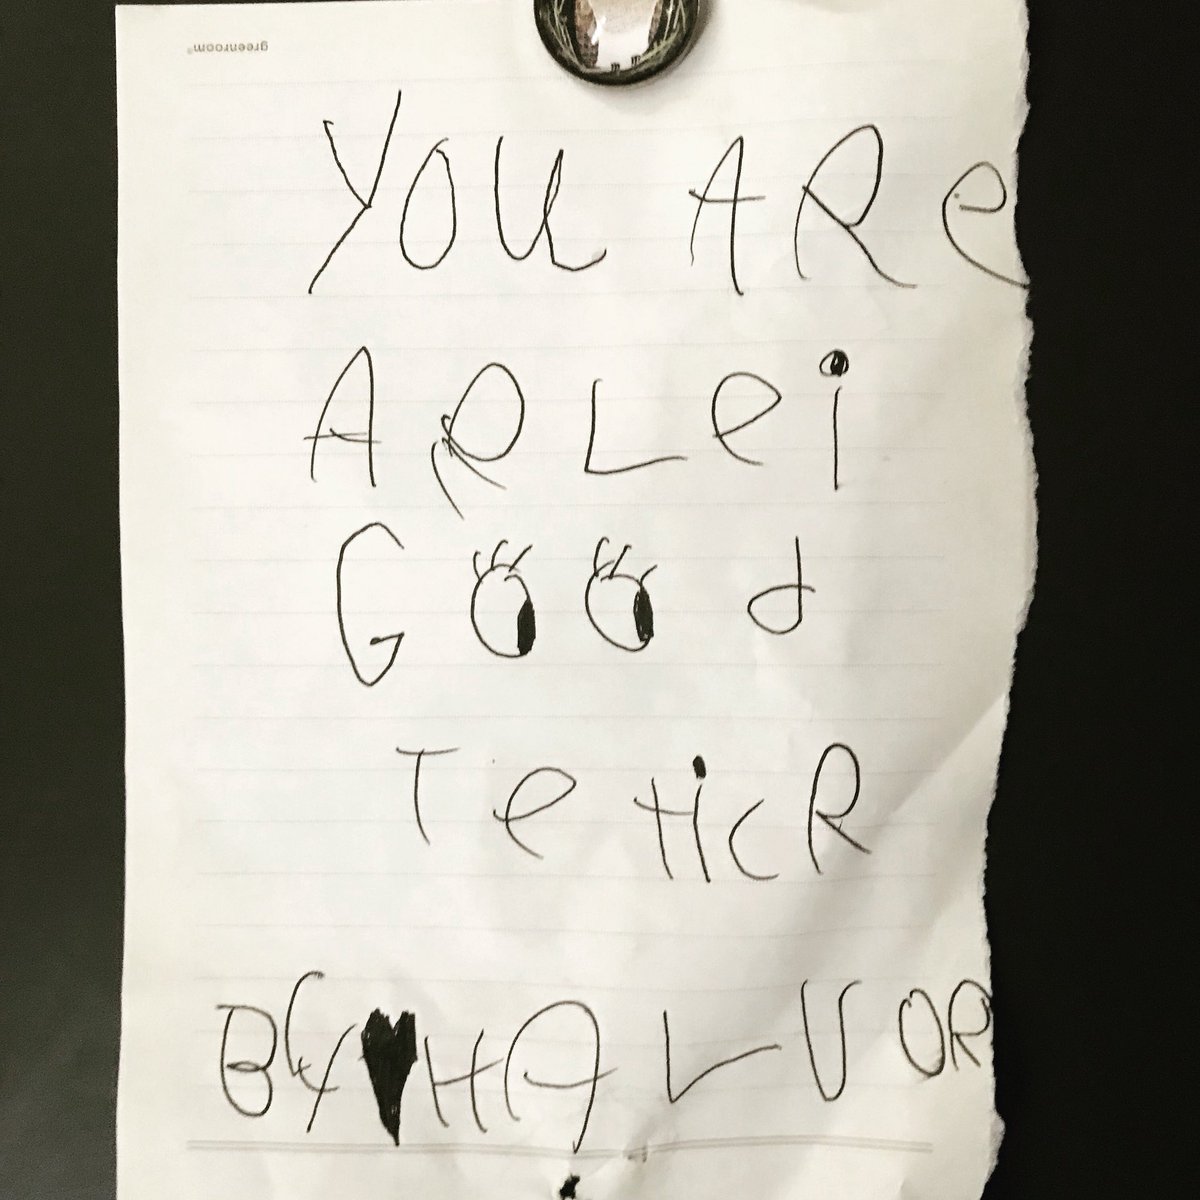 greenroom®
YOU ARe
ARLei
GOOd
TeHicR
BY HALVOR